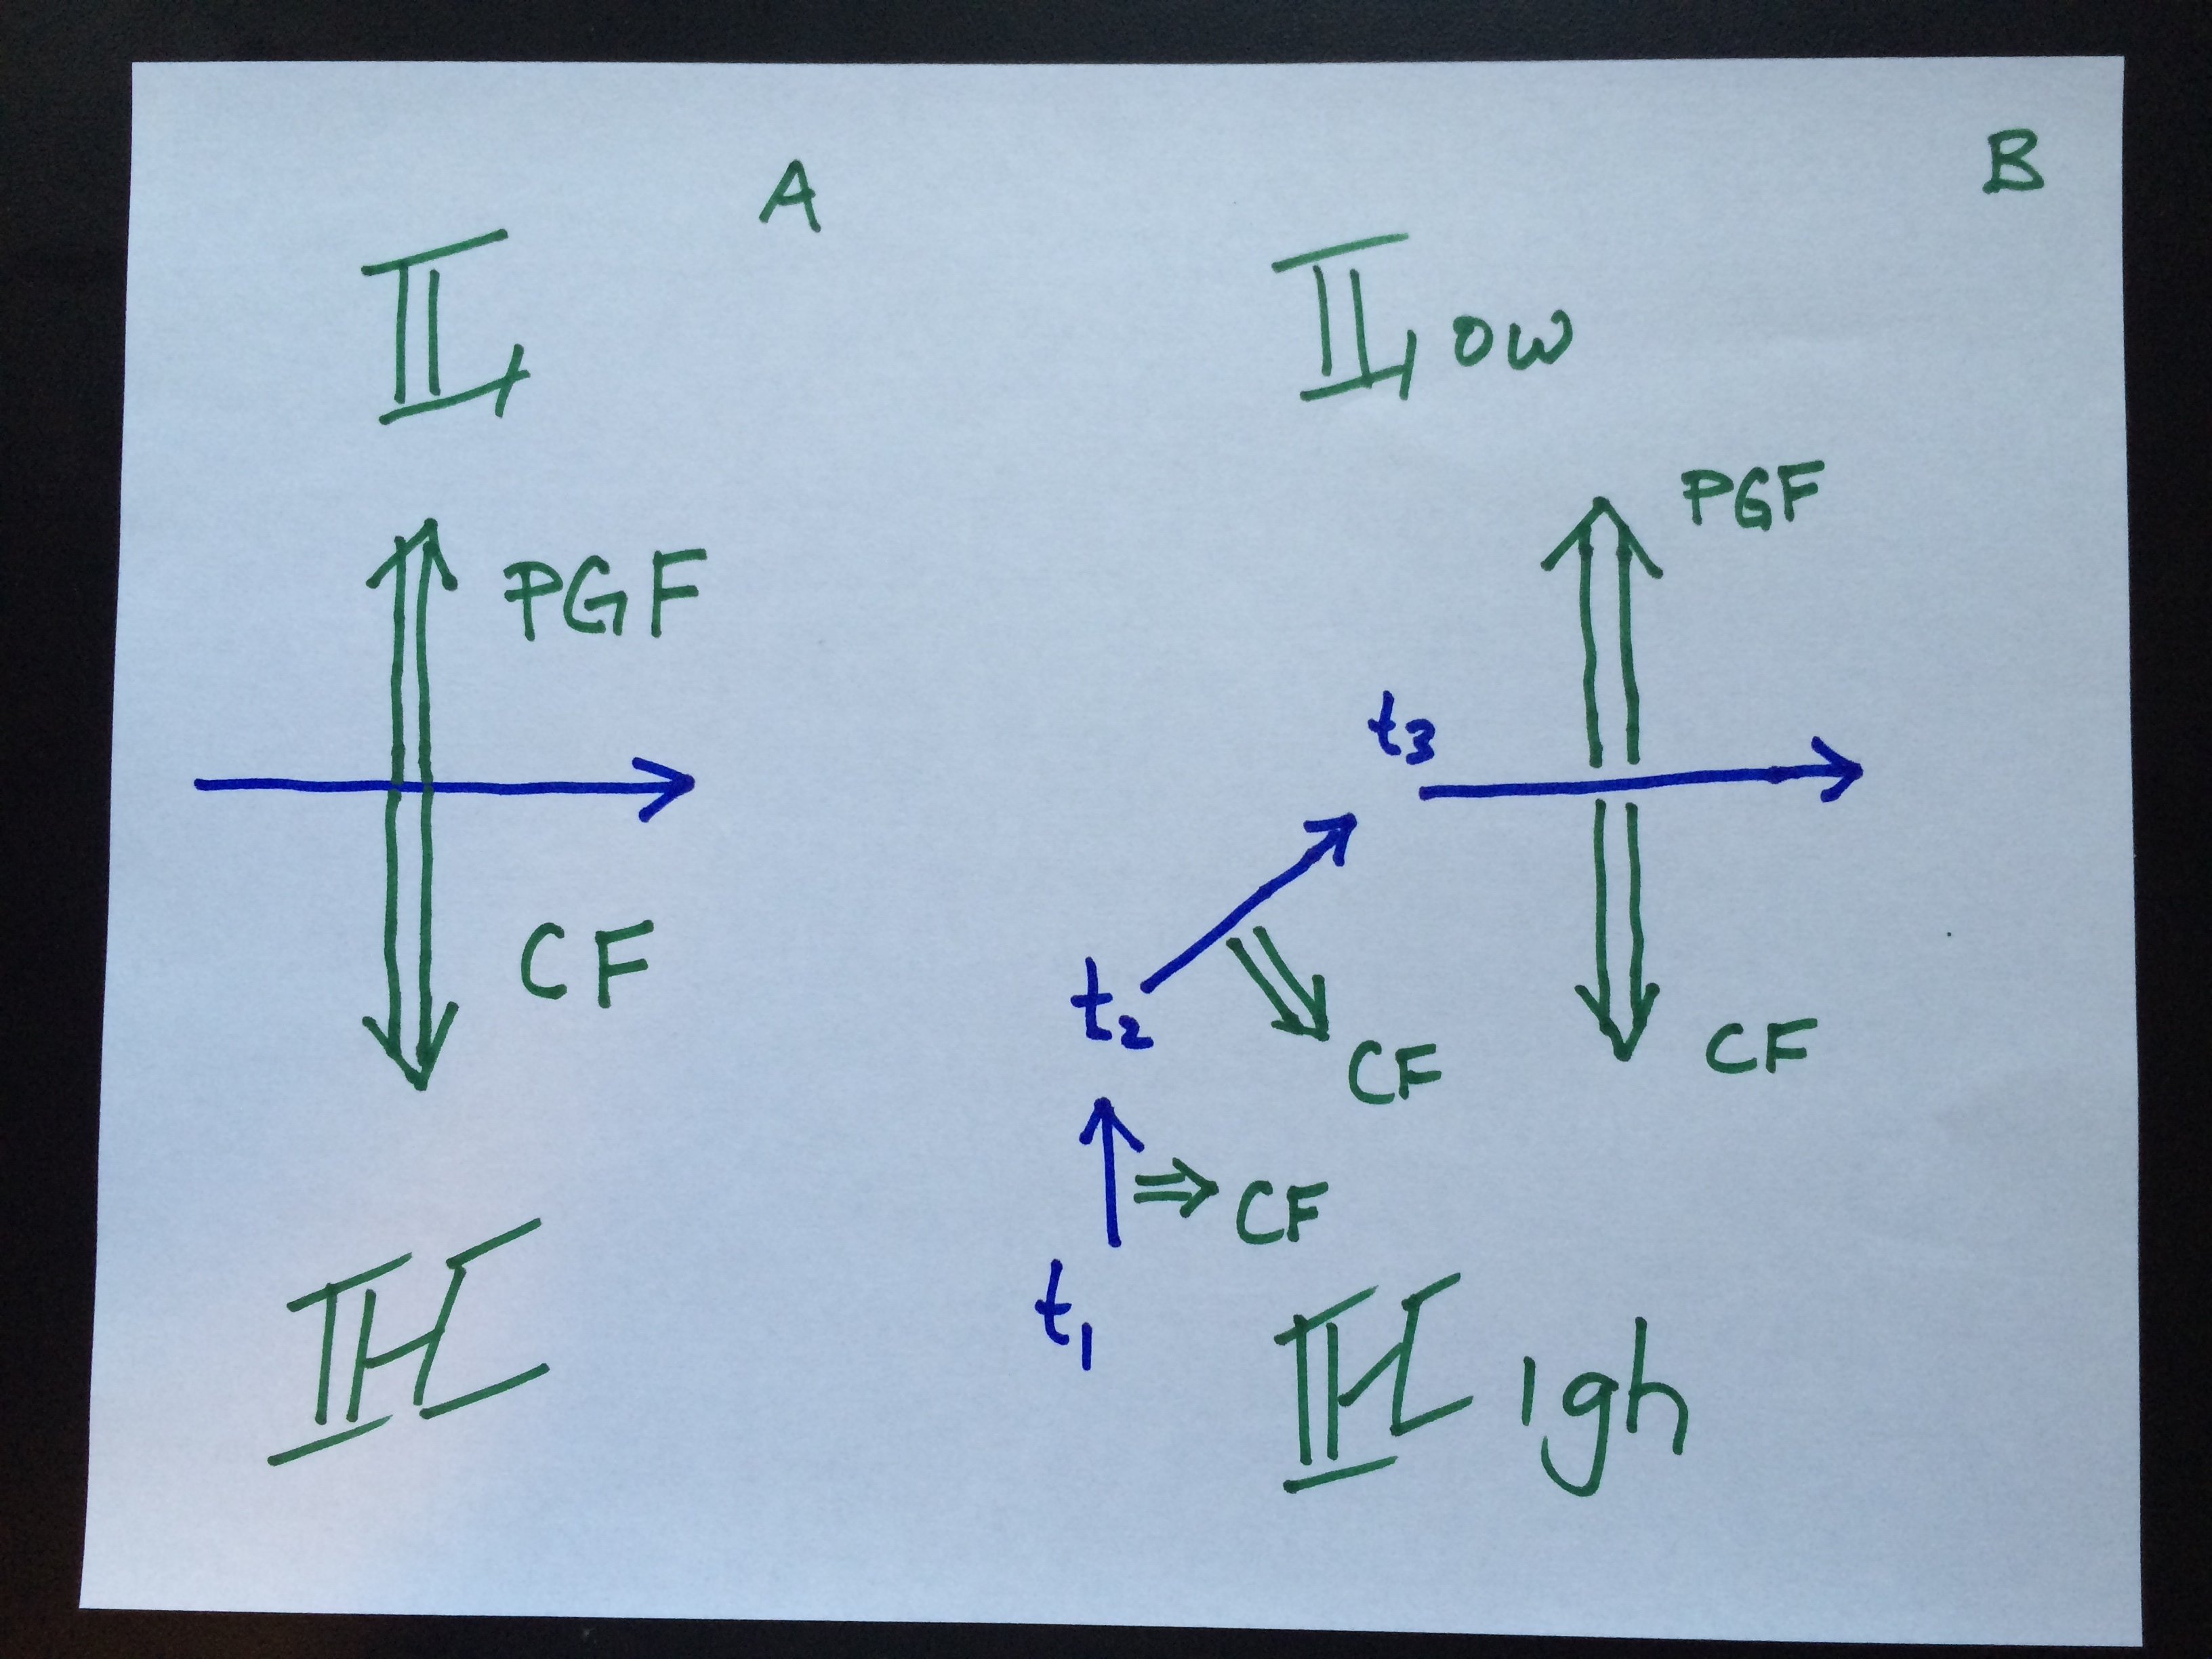 A
L
PGF
CF
H
B
Low
PGF
t3
t2
CF
CF
CF
t1
High